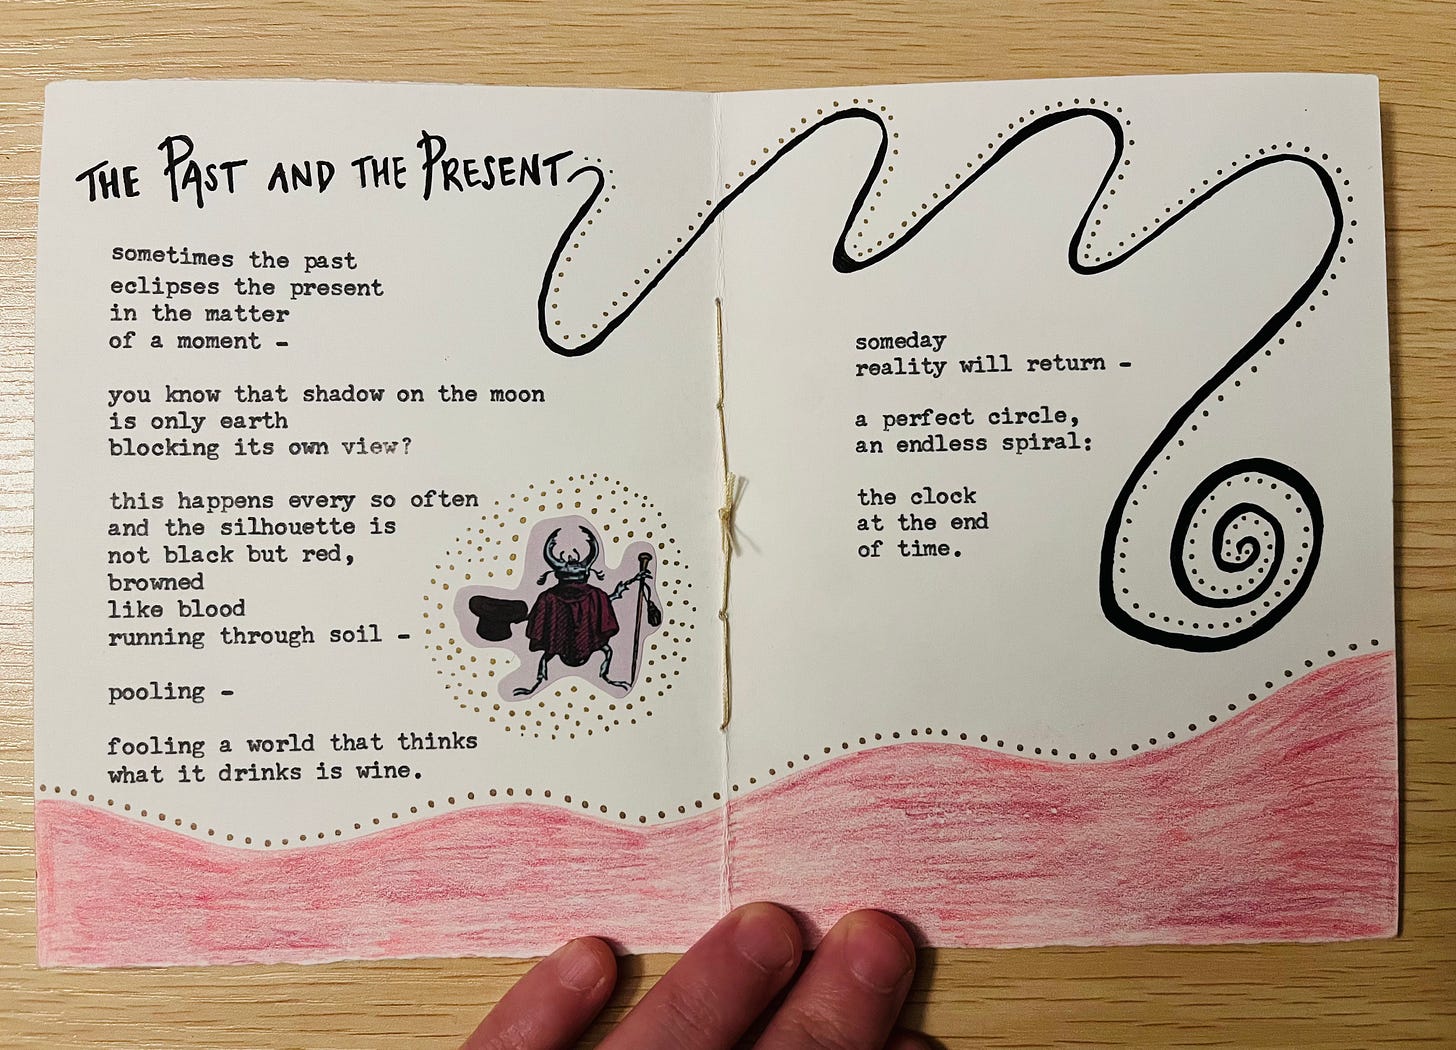 THE PAST AND THE PRESENT
sometimes the past
eclipses the present
in the matter
of a moment -
you know that shadow on the moon
is only earth
blocking its own view?
this happens every so often
and the silhouette is
not black but red,
browned
like blood
running through soil -
pooling -
fooling a world that thinks
what it drinks is wine.
someday
reality will return -
a perfect circle,
an endless spiral:
the clock
at the end
of time.